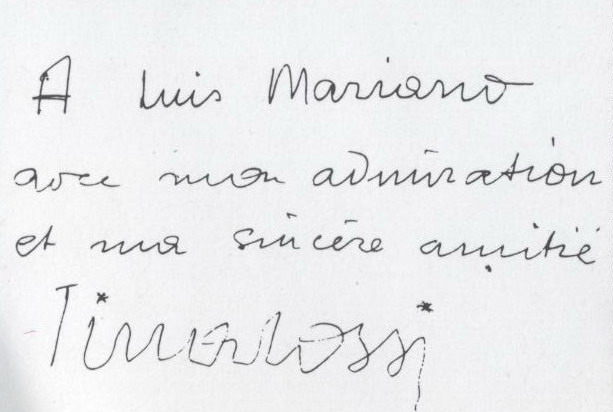 A Luis Mariano
avec mon admiration
et ma sincère amitié
Tino Rossi